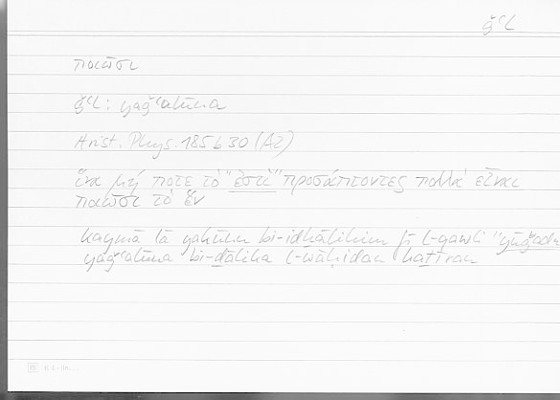 ǧʿl
ποιῶσι
ǧʿl: yaǧʿalūna
Arist. Phys. 185 b 30 (A2)
ἵνα μή ποτε τὸ "ἐστὶ" προσάπτοντες πολλὰ εἶναι
ποιῶσι τὸ ἕν
kaymā lā yakūnu bi-idḫālihim fī l-qawli "yūǧadu
yaǧʿalūna bi-ḏālika l-wāḥidan kaṯīran